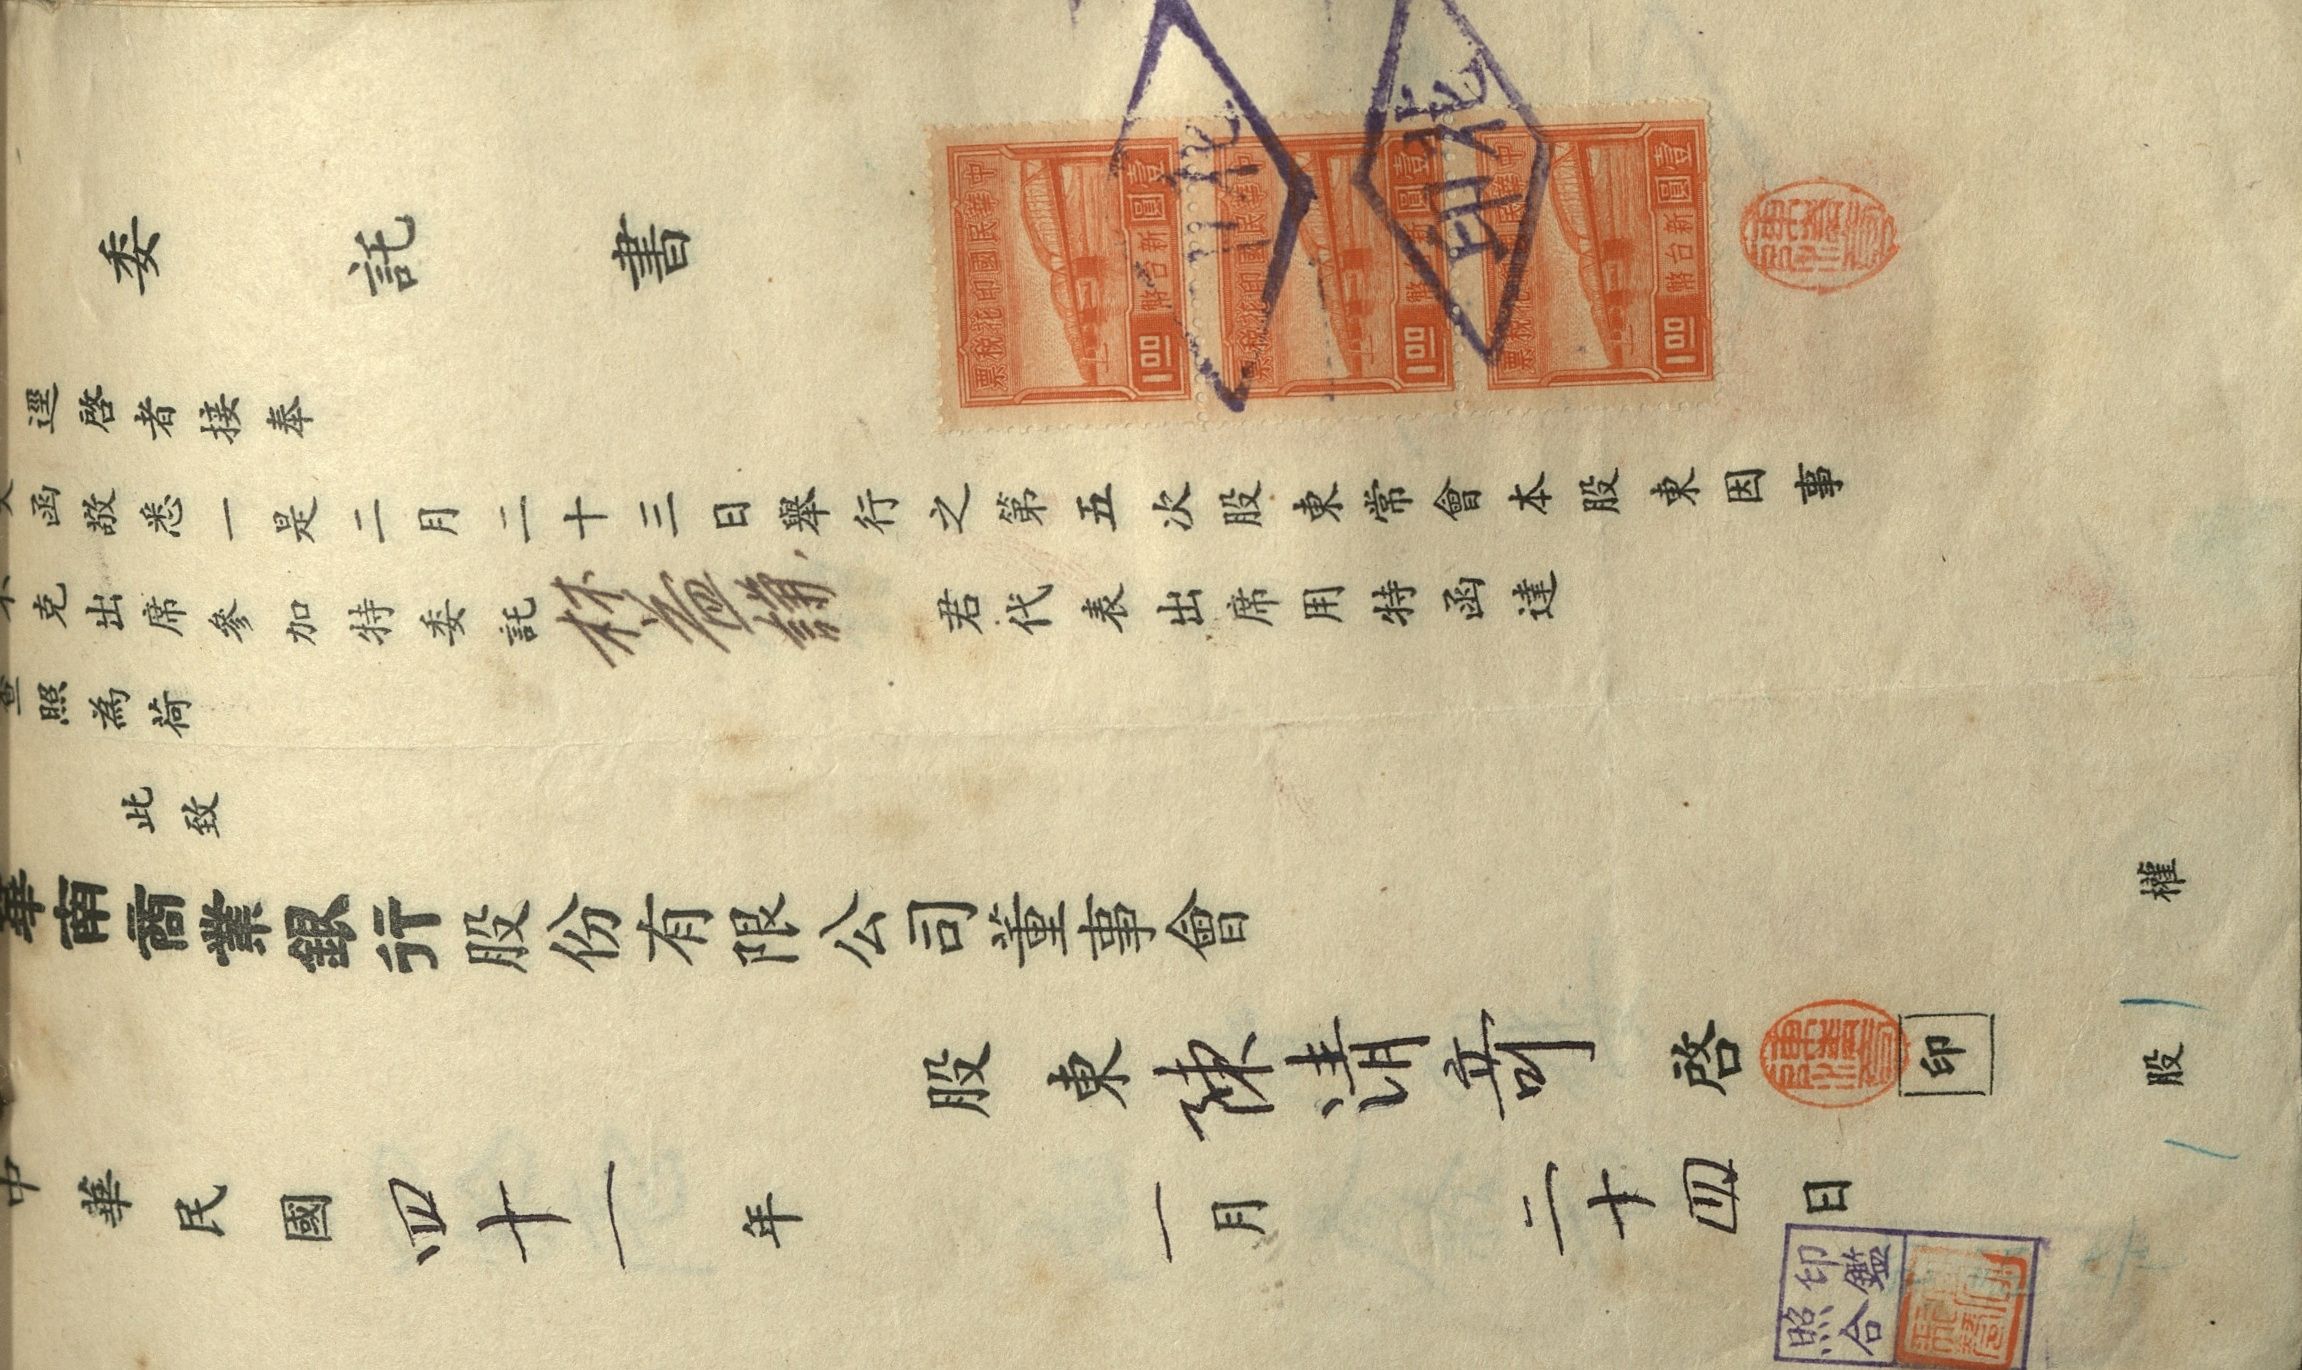 委託書
逕啓者接奉
函敬悉一是二月二十三日舉行之第五次股東常會本股東因事
不克出席參加特委託林 君代表出席用特函達
查照為荷
此致
華南商業銀行股份有限公司董事會
股東陳清奇啓 印
股 權
中華民國四十一年一月二十四日
中華民國印花稅票
壹圓
新台幣
1.00
中華民國印花稅票
壹圓
新台幣
1.00
中華民國印花稅票
壹圓
新台幣
1.00
印花
印花
印鑑
照合